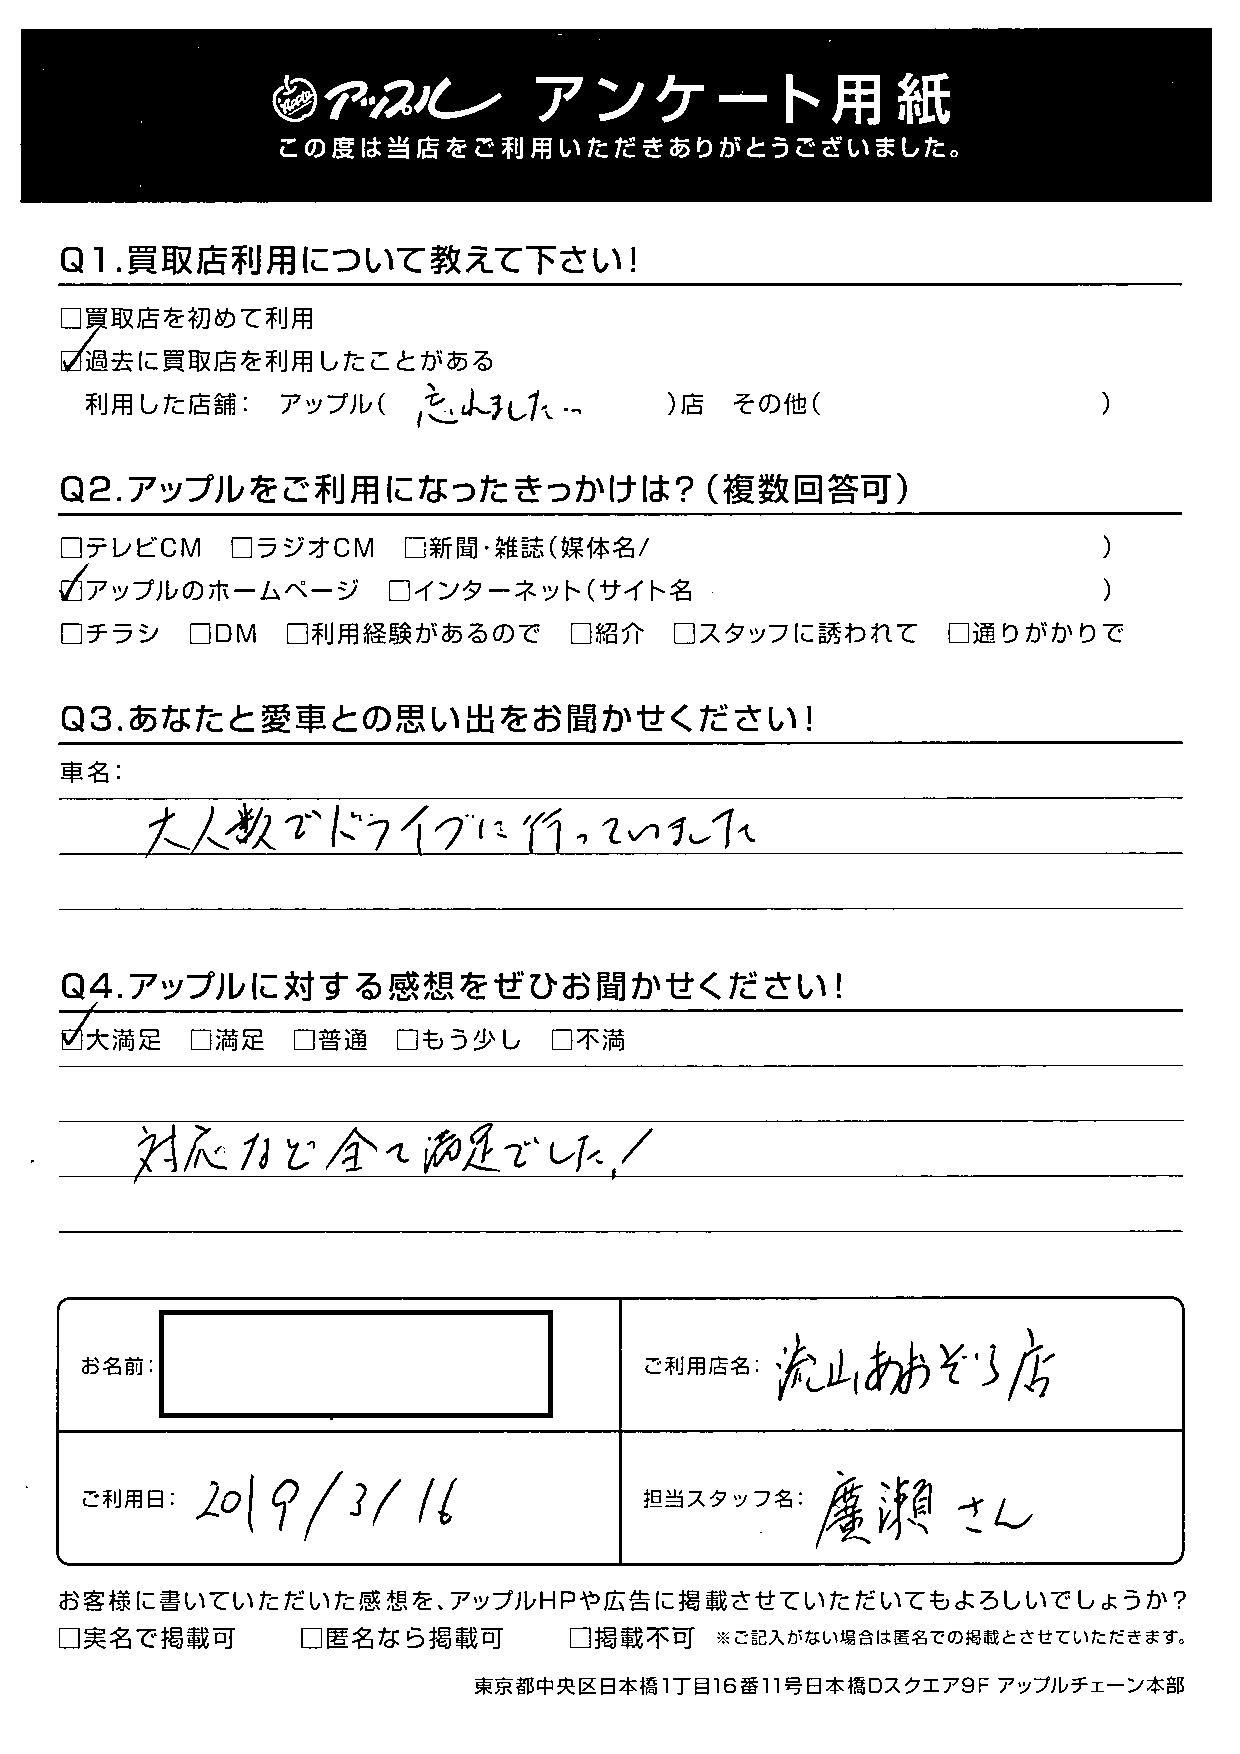 Apple アップル アンケート用紙
この度は当店をご利用いただきありがとうございました。
Q1.買取店利用について教えて下さい!
□買取店を初めて利用
☑過去に買取店を利用したことがある
利用した店舗: アップル( 忘れました… )店 その他( )
Q2.アップルをご利用になったきっかけは?(複数回答可)
□テレビCM □ラジオCM □新聞・雑誌(媒体名/ )
☑アップルのホームページ □インターネット(サイト名 )
□チラシ □DM □利用経験があるので □紹介 □スタッフに誘われて □通りがかりで
Q3.あなたと愛車との思い出をお聞かせください!
車名:
大人数でドライブに行っていました
Q4.アップルに対する感想をぜひお聞かせください!
☑大満足 □満足 □普通 □もう少し □不満
対応など全て満足でした!
お名前: ご利用店名: 流山あおぞら店
ご利用日: 2019/3/16 担当スタッフ名: 廣瀬さん
お客様に書いていただいた感想を、アップルHPや広告に掲載させていただいてもよろしいでしょうか?
□実名で掲載可 □匿名なら掲載可 □掲載不可 ※ご記入がない場合は匿名での掲載とさせていただきます。
東京都中央区日本橋1丁目16番11号日本橋Dスクエア9F アップルチェーン本部